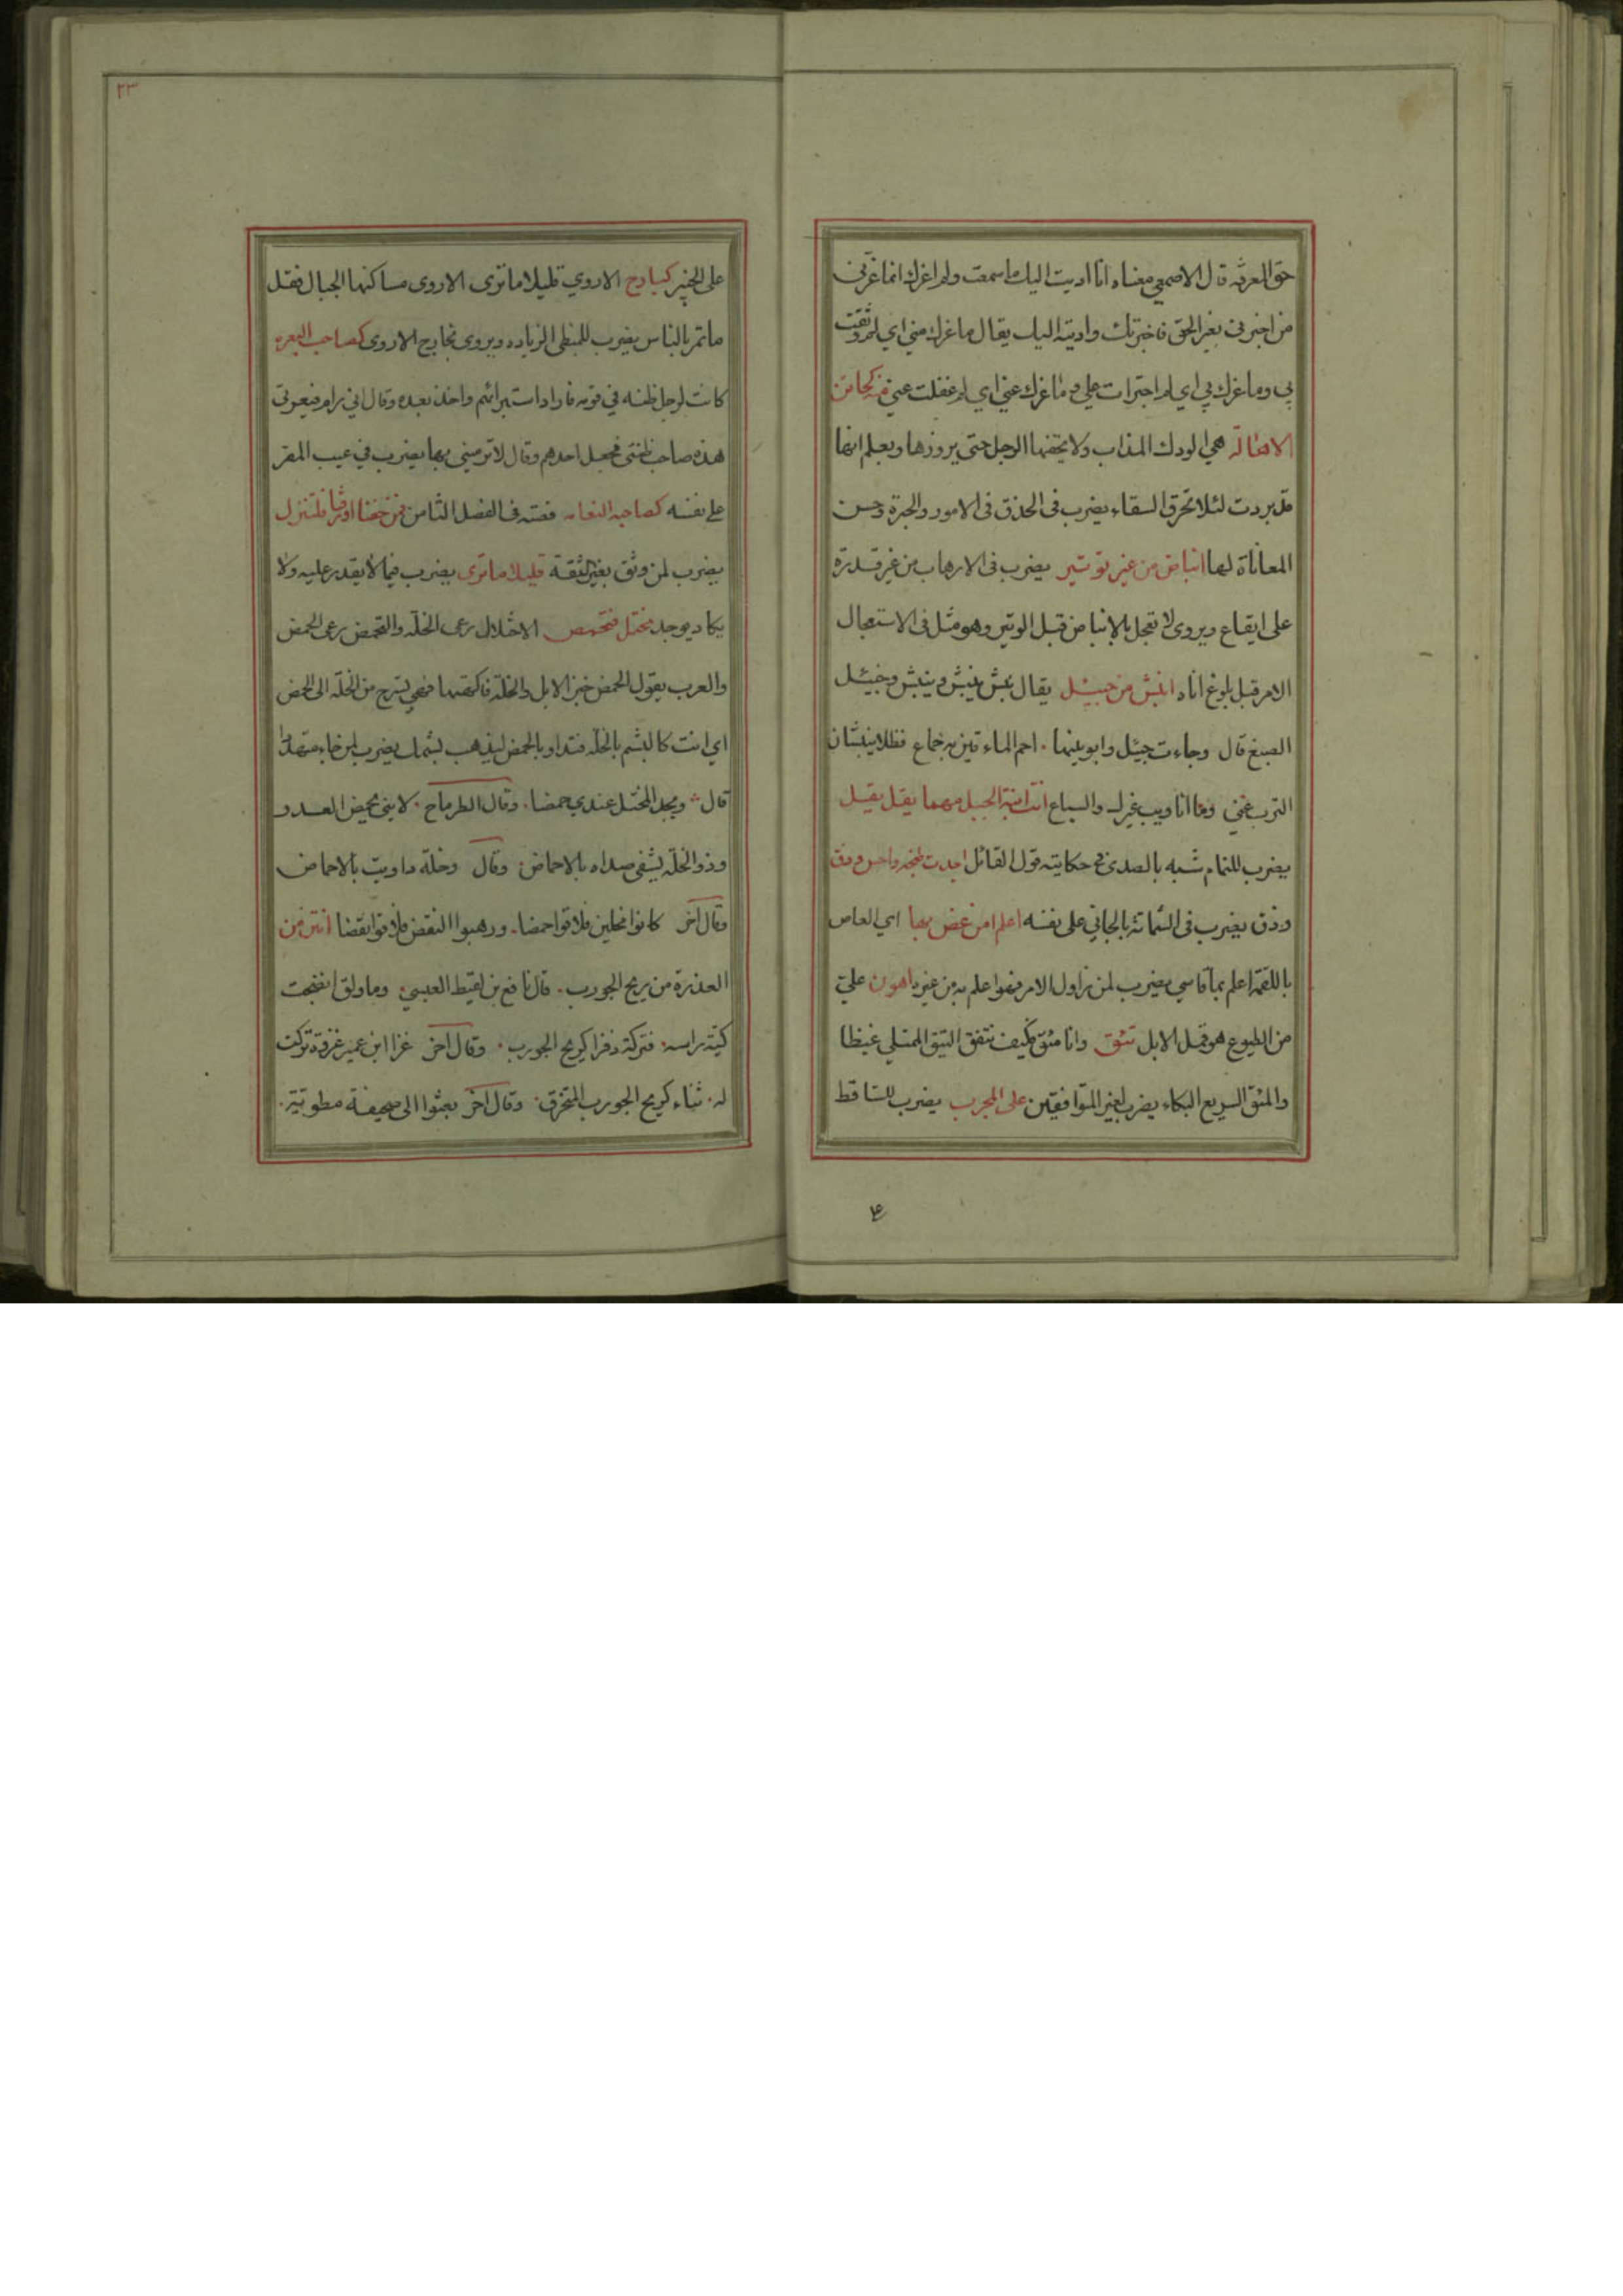 حق المعرفة قال الاصمعي معناه انا اديت اليك ما سمعت ولم اغرك انما غرني
من اخبرني بغير الحق فاخبرتك واديته اليك يقال ما غرك مني اي لم وثقت
بي وما غرك بي اي لم اجترات علي وما غرك عني اي لم غفلت عني كحاقن
الاهالة هي الودك المذاب ولا يحقنها الرجل حتى يروزها ويعلم انها
قد بردت لئلا تحرق السقاء يضرب في الحذق في الامور والخبرة وحسن
المعاناة لها انباض من غير توتير يضرب في الارهاب من غير قدرة
على ايقاع ويروى لا تعجل بالانباض قبل الوتير وهو مثل في الاستعجال
الامر قبل بلوغ اناه انبش من جيئل يقال نبش ينبش وينبش وجيئل
الضبع قال وجاءت جيئل وابو بنيها . احم الماء قين به خماع فظلا ينبشان
الترب عني وما انا ويب غيرك والسباع انت ابنة الجبل مهما يقل يقل
يضرب للنمام شبه بالصدى في حكايته قول القائل احس وذق
وذق يضرب في الشماتة بالجاني على نفسه اعلم من غص بها اي الغاص
باللقمة اعلم بما قاسي يضرب لمن زاول الامر فهو اعلم به من غيره اهون علي
من الطيوع هو قمل الابل تئق وانا مئق فكيف نتفق التئق الممتلي غيظا
والمئق السريع البكاء يضرب لغير المتوافقين على المجرب يضرب للساقط
٢٣
على الخبير كبارح الاروي قليلا ما ترى الاروى مساكنها الجبال فقل
ما تمر بالناس يضرب للبطي الزياده ويروى كبارح الاروى كصاحب البعره
كانت لرجل ظنه في قومه فاراد استبرائهم واخذ بعده وقال اني رام فيعرف
هذه صاحب ظنتي فجعل احدهم وقال لا ترميني بها يضرب في عيب المقر
على نفسه كصاحبه النعامه قصته في الفصل الثامن
يضرب لمن وثق بغير الثقة قليلا ما ترى يضرب فيما لا يقدر عليه ولا
يكاد يوجد مختل فتحمض الاختلال رعى الخلة والتحمض رعى الحمض
والعرب يقول الحمض خبز الابل والخلة فاكهتها فهي تستريح من الخلة الى الحمض
اي انت كالبشم بالخلة فتداو بالحمض ليذهب بشمك يضرب لمن جاء متهددا
قال ويجد المختل عندي حمضا . وقال الطرماح . لا يني يحمض العدو
وذو الخلة يشفى صداه بالاحماض . وقال وخلة داويت بالاحماض
وقال آخر كانوا مخلين فلاقوا حمضا . ورهبوا النقض فلاقوا نقضا انتن من
العذرة من ريح الجورب . قال نافع بن لقيط العبسي . وما ولق انضجت
كية راسه . فتركته ذفرا كريح الجورب . وقال آخر غزا ابن عمير غزوة تركت
له . ثناء كريح الجورب المتخرق . وقال آخر بعثوا الى صحيفة مطوية .